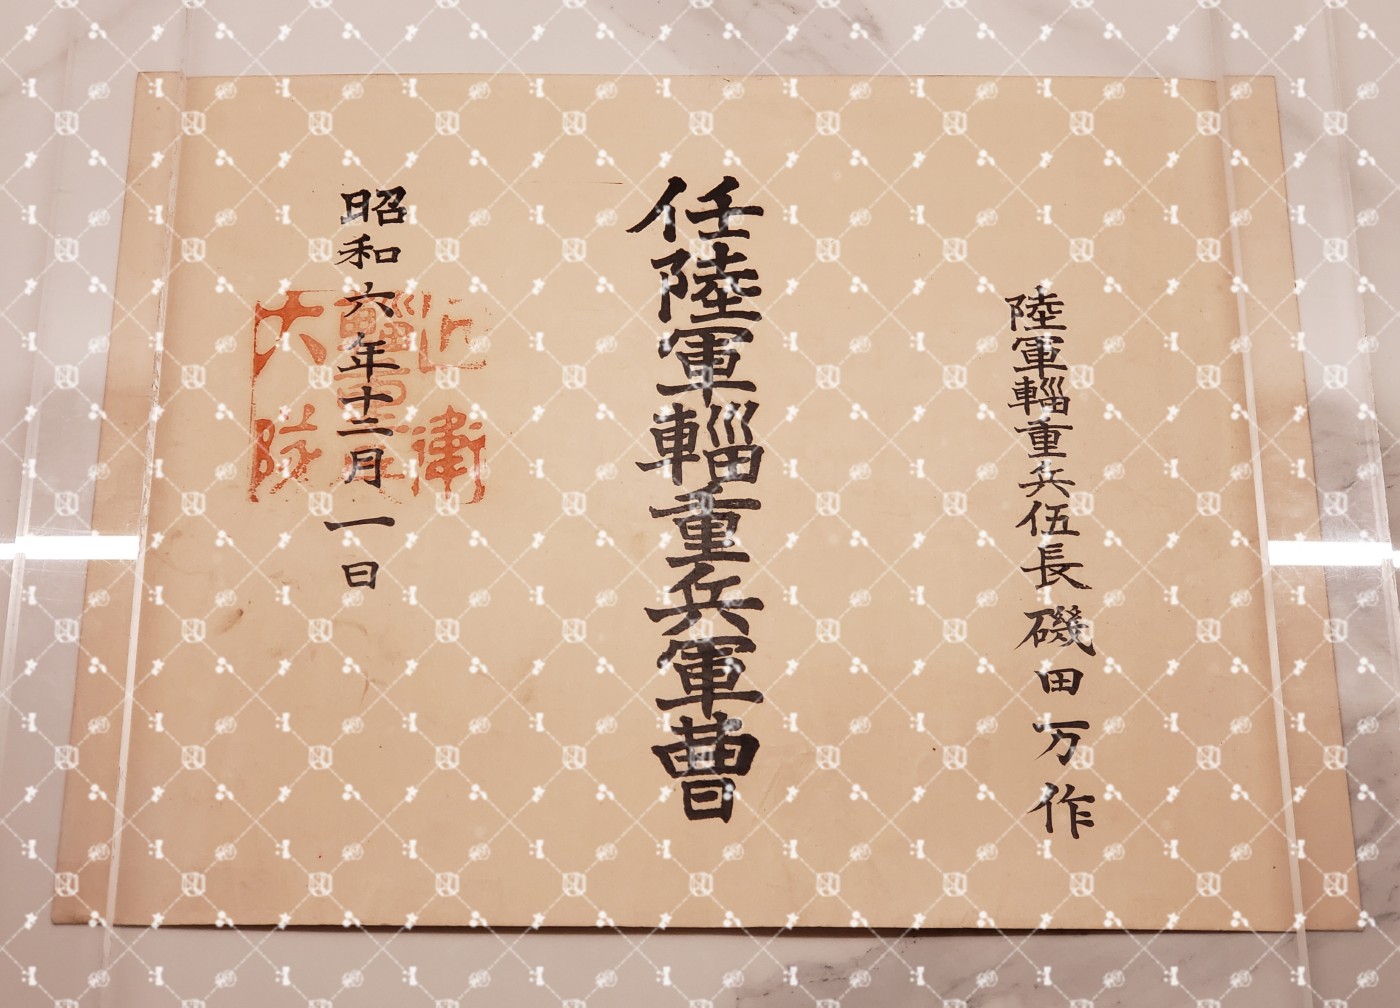 陸軍輜重兵伍長磯田万作
任陸軍輜重兵軍曹
昭和六年十二月一日
近衛
輜重兵
大隊